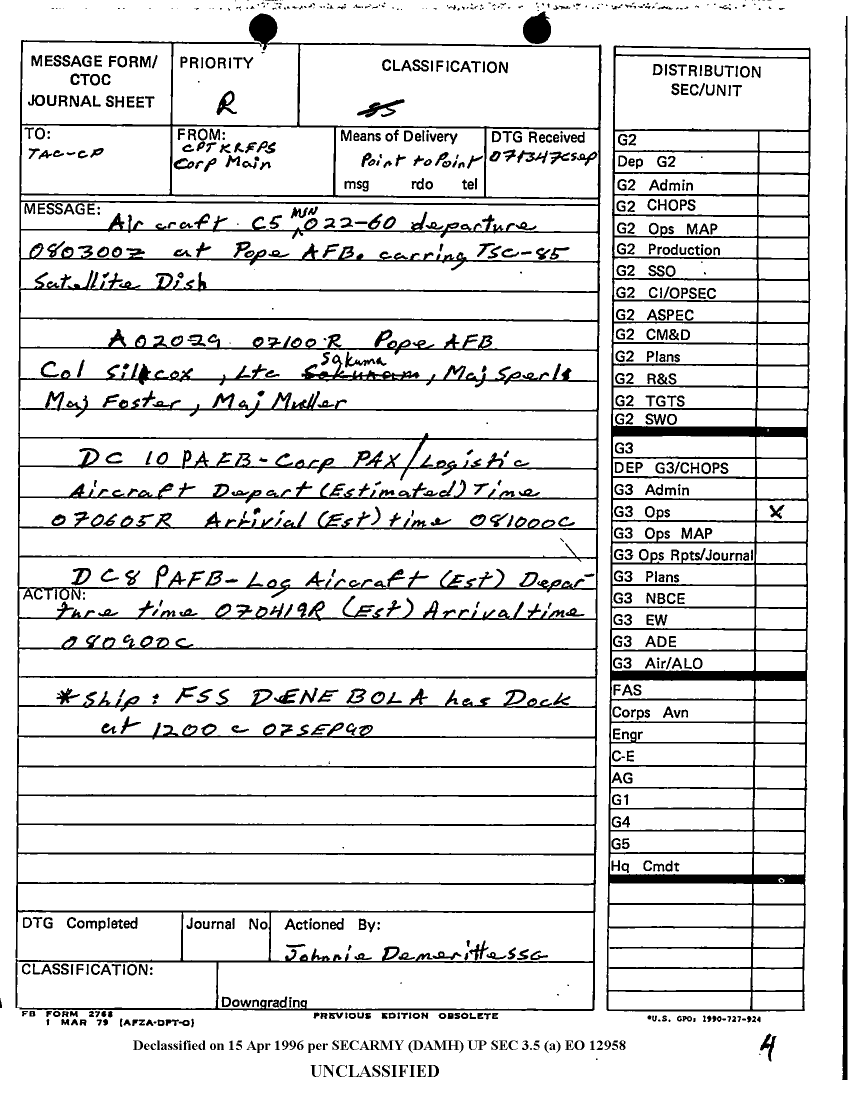 MESSAGE FORM/
CTOC
JOURNAL SHEET
PRIORITY
R
CLASSIFICATION
TO:
TAC-CP
FROM:
CPT KREPS
Corp Main
Means of Delivery
Point to Point
msg rdo tel
DTG Received
071347CSep
MESSAGE:
Air craft C5 MSN 022-60 departure
080300Z at Pope AFB. carring TSC-85
Satellite Dish
A02029 07100R Pope AFB
Col Silkcox, Ltc Sakuma, Maj Sperls
Maj Foster, Maj Muller
DC 10 PAFB-Corp PAX/Logistic
Aircraft Depart (Estimated) Time
070605R Artivial (Est) time 081000C
DC8 PAFB-Log Aircraft (Est) Depar-
ACTION:
ture time 070419R (Est) Arrival time
080900C
*Ship: FSS DENEBOLA has Dock
at 1200 C 07SEP90
DTG Completed
Journal No.
Actioned By:
Johnnie Demeritte SSG
CLASSIFICATION:
Downgrading
FB FORM 2768
1 MAR 79 (AFZA-DPT-O)
PREVIOUS EDITION OBSOLETE
DISTRIBUTION
SEC/UNIT
G2
Dep G2
G2 Admin
G2 CHOPS
G2 Ops MAP
G2 Production
G2 SSO
G2 CI/OPSEC
G2 ASPEC
G2 CM&D
G2 Plans
G2 R&S
G2 TGTS
G2 SWO
G3
DEP G3/CHOPS
G3 Admin
G3 Ops X
G3 Ops MAP
G3 Ops Rpts/Journal
G3 Plans
G3 NBCE
G3 EW
G3 ADE
G3 Air/ALO
FAS
Corps Avn
Engr
C-E
AG
G1
G4
G5
Hq Cmdt
*U.S. GPO: 1990-727-924
Declassified on 15 Apr 1996 per SECARMY (DAMH) UP SEC 3.5 (a) EO 12958
4
UNCLASSIFIED